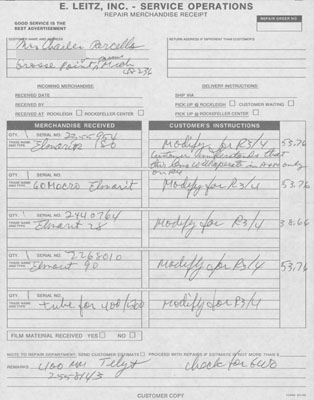 E. LEITZ, INC. - SERVICE OPERATIONS
REPAIR MERCHANDISE RECEIPT
GOOD SERVICE IS THE
BEST ADVERTISEMENT
REPAIR ORDER NO.
CUSTOMER NAME AND ADDRESS
RETURN ADDRESS IF DIFFERENT THAN CUSTOMER'S
Mrs Charles Parcells
Grosse Pointe Farms Mich
48236
INCOMING MERCHANDISE:
DELIVERY INSTRUCTIONS:
RECEIVED DATE
SHIP VIA
RECEIVED BY
PICK UP @ ROCKLEIGH CUSTOMER WAITING
RECEIVED AT ROCKLEIGH ROCKEFELLER CENTER
PICK UP @ ROCKEFELLER CENTER
MERCHANDISE RECEIVED
CUSTOMER'S INSTRUCTIONS
QTY. SERIAL NO.
TRADE NAME AND TYPE Elmarit 180
Modify for R3/4 53.76
Customer understands that
this lens will operate in A+M only
on R4
QTY. SERIAL NO.
TRADE NAME AND TYPE 60 MACRO Elmarit
Modify for R3/4 53.76
QTY. SERIAL NO. 2440764
TRADE NAME AND TYPE Elmarit 28
Modify for R3/4 38.66
QTY. SERIAL NO. 2268010
TRADE NAME AND TYPE Elmarit 90
Modify for R3/4 53.76
QTY. SERIAL NO.
TRADE NAME AND TYPE tube for 400/560
Modify for R3/4
FILM MATERIAL RECEIVED YES NO
NOTE TO REPAIR DEPARTMENT: SEND CUSTOMER ESTIMATE PROCEED WITH REPAIRS IF ESTIMATE IS NOT MORE THAN $
REMARKS 400 mm Telyt check for
2558143
CUSTOMER COPY